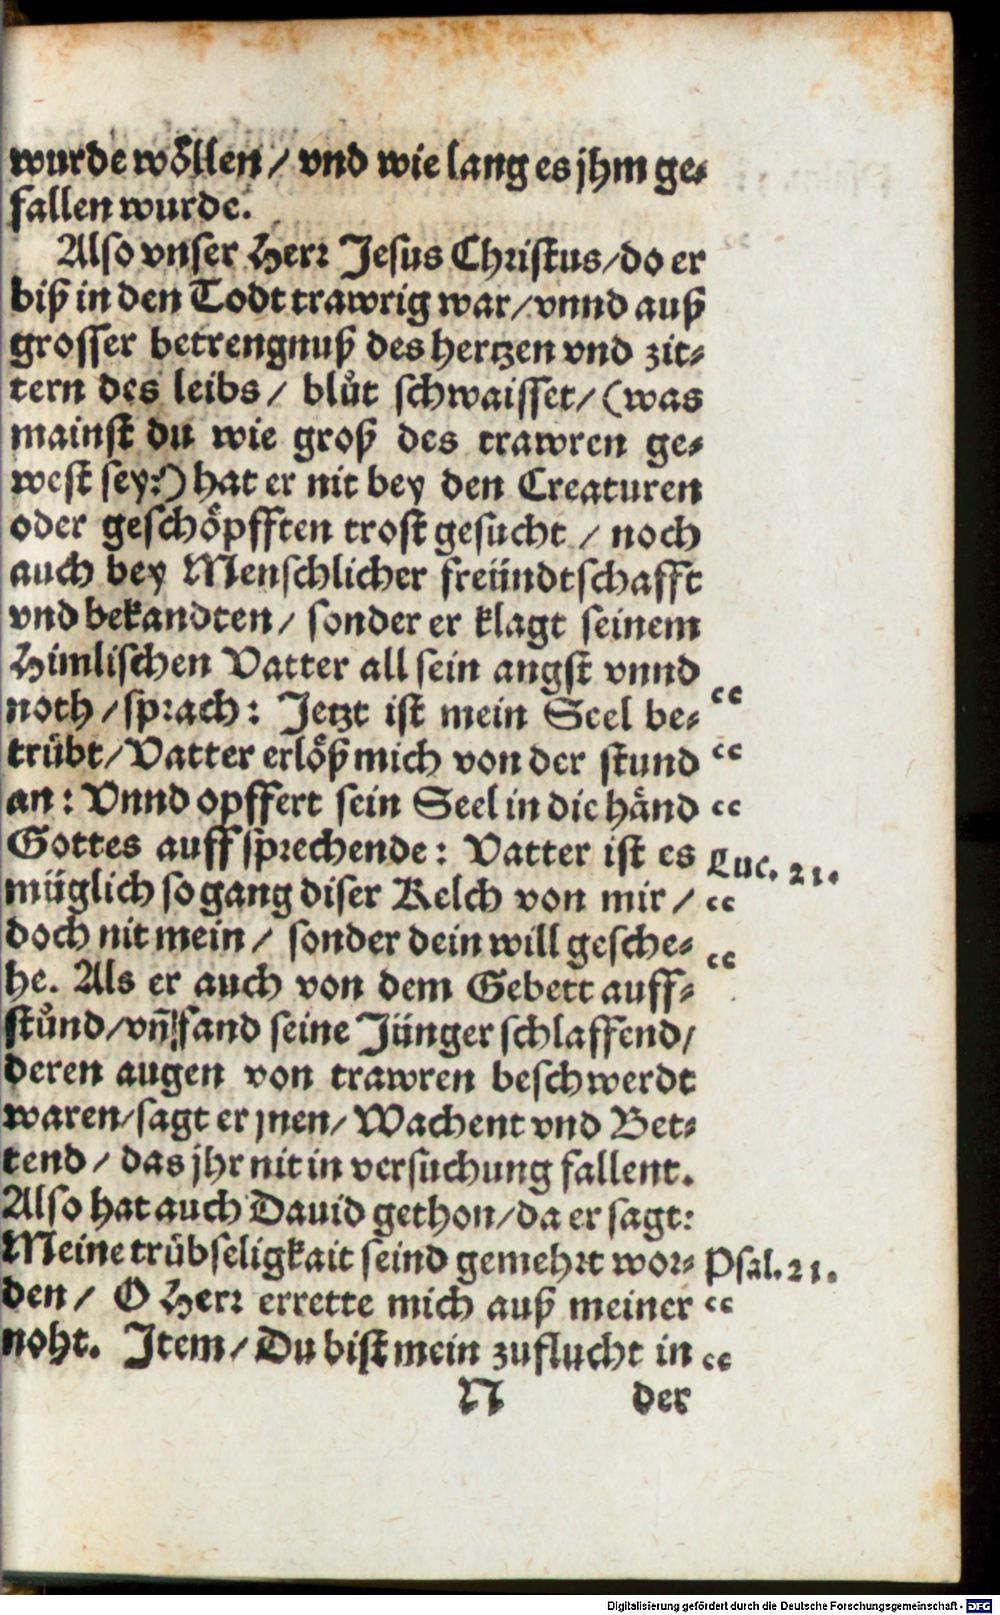 wurde wöllen / vnd wie lang es jhm ge⸗
fallen wurde.
Also vnser Herr Jesus Christus / do er
biß in den Todt trawrig war / vnnd auß
grosser betrengnuß des hertzen vnd zit⸗
tern des leibs / blůt schwaisset / (was
mainst du wie groß des trawren ge⸗
west sey?) hat er nit bey den Creaturen
oder geschöpfften trost gesucht / noch
auch bey Menschlicher freündtschafft
vnd bekandten / sonder er klagt seinem
Himlischen Vatter all sein angst vnnd
noth / sprach: Jetzt ist mein Seel be⸗ “
trübt / Vatter erlöß mich von der stund “
an: Vnnd opffert sein Seel in die händ “
Gottes auff sprechende: Vatter ist es Luc. 21.
müglich so gang diser Kelch von mir / “
doch nit mein / sonder dein will gesche⸗ “
he. Als er auch von dem Gebett auff⸗
stůnd / vñ fand seine Jünger schlaffend /
deren augen von trawren beschwerdt
waren / sagt er jnen / Wachent vnd Bet⸗
tend / das jhr nit in versuchung fallent.
Also hat auch Dauid gethon / da er sagt:
Meine trübseligkait seind gemehrt wor⸗ Psal. 21.
den / O Herr errette mich auß meiner “
noht. Item / Du bist mein zuflucht in “
N der
Digitalisierung gefördert durch die Deutsche Forschungsgemeinschaft - DFG